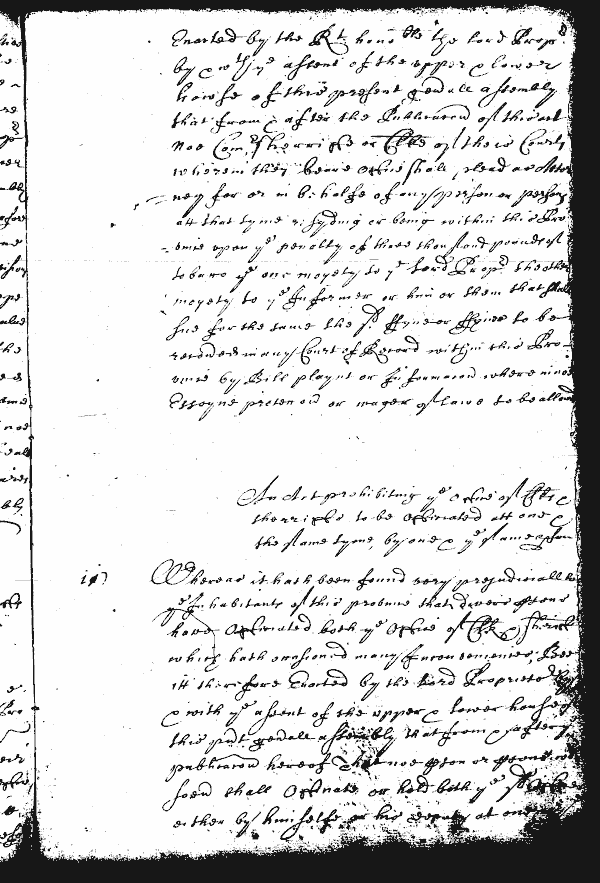 Enacted by the Rt hono ble the lord Propr
by & wth ye assent of the upper & lower
howse of this present gen̄all assembly
that from & after the Publicacon of this act
noe Com̄ Sherriffe or Clke of theire Courts
wherein they beare office shall plead as Attor
ney for or in behalfe of any person or persons
att that tyme residing or being within this Pro
vince upon ye penalty of three thousand pounds of
tobacco ye one moyety to ye Lord Propr the other
moyety to ye Informer or him or them that shall
sue for the same the sd ffyne or ffynes to be
recovered in any Court of Record within this Pro
vince by Bill playnt or Informacon where in noe
Essoyne protecc̄on or wager of lawe to be allowed
An Act prohibiting ye office of Clke &
Sherriffe to be officiated att one &
the same tyme, by one & ye same person
Whereas it hath been found very prejudiciall to
ye Inhabitants of this province that divers persons
have officiated both ye office of Clke & Sherriffe
which hath occasioned many Inconveniences, Bee
itt therefore Enacted by the Lord Proprietor
& with ye assent of the upper & lower house of
this pnt gen̄all assembly that from & after
publicacon hereof that noe pson or psons
soever shall officiate or hold both ye sd offices
either by himselfe or his deputy at one